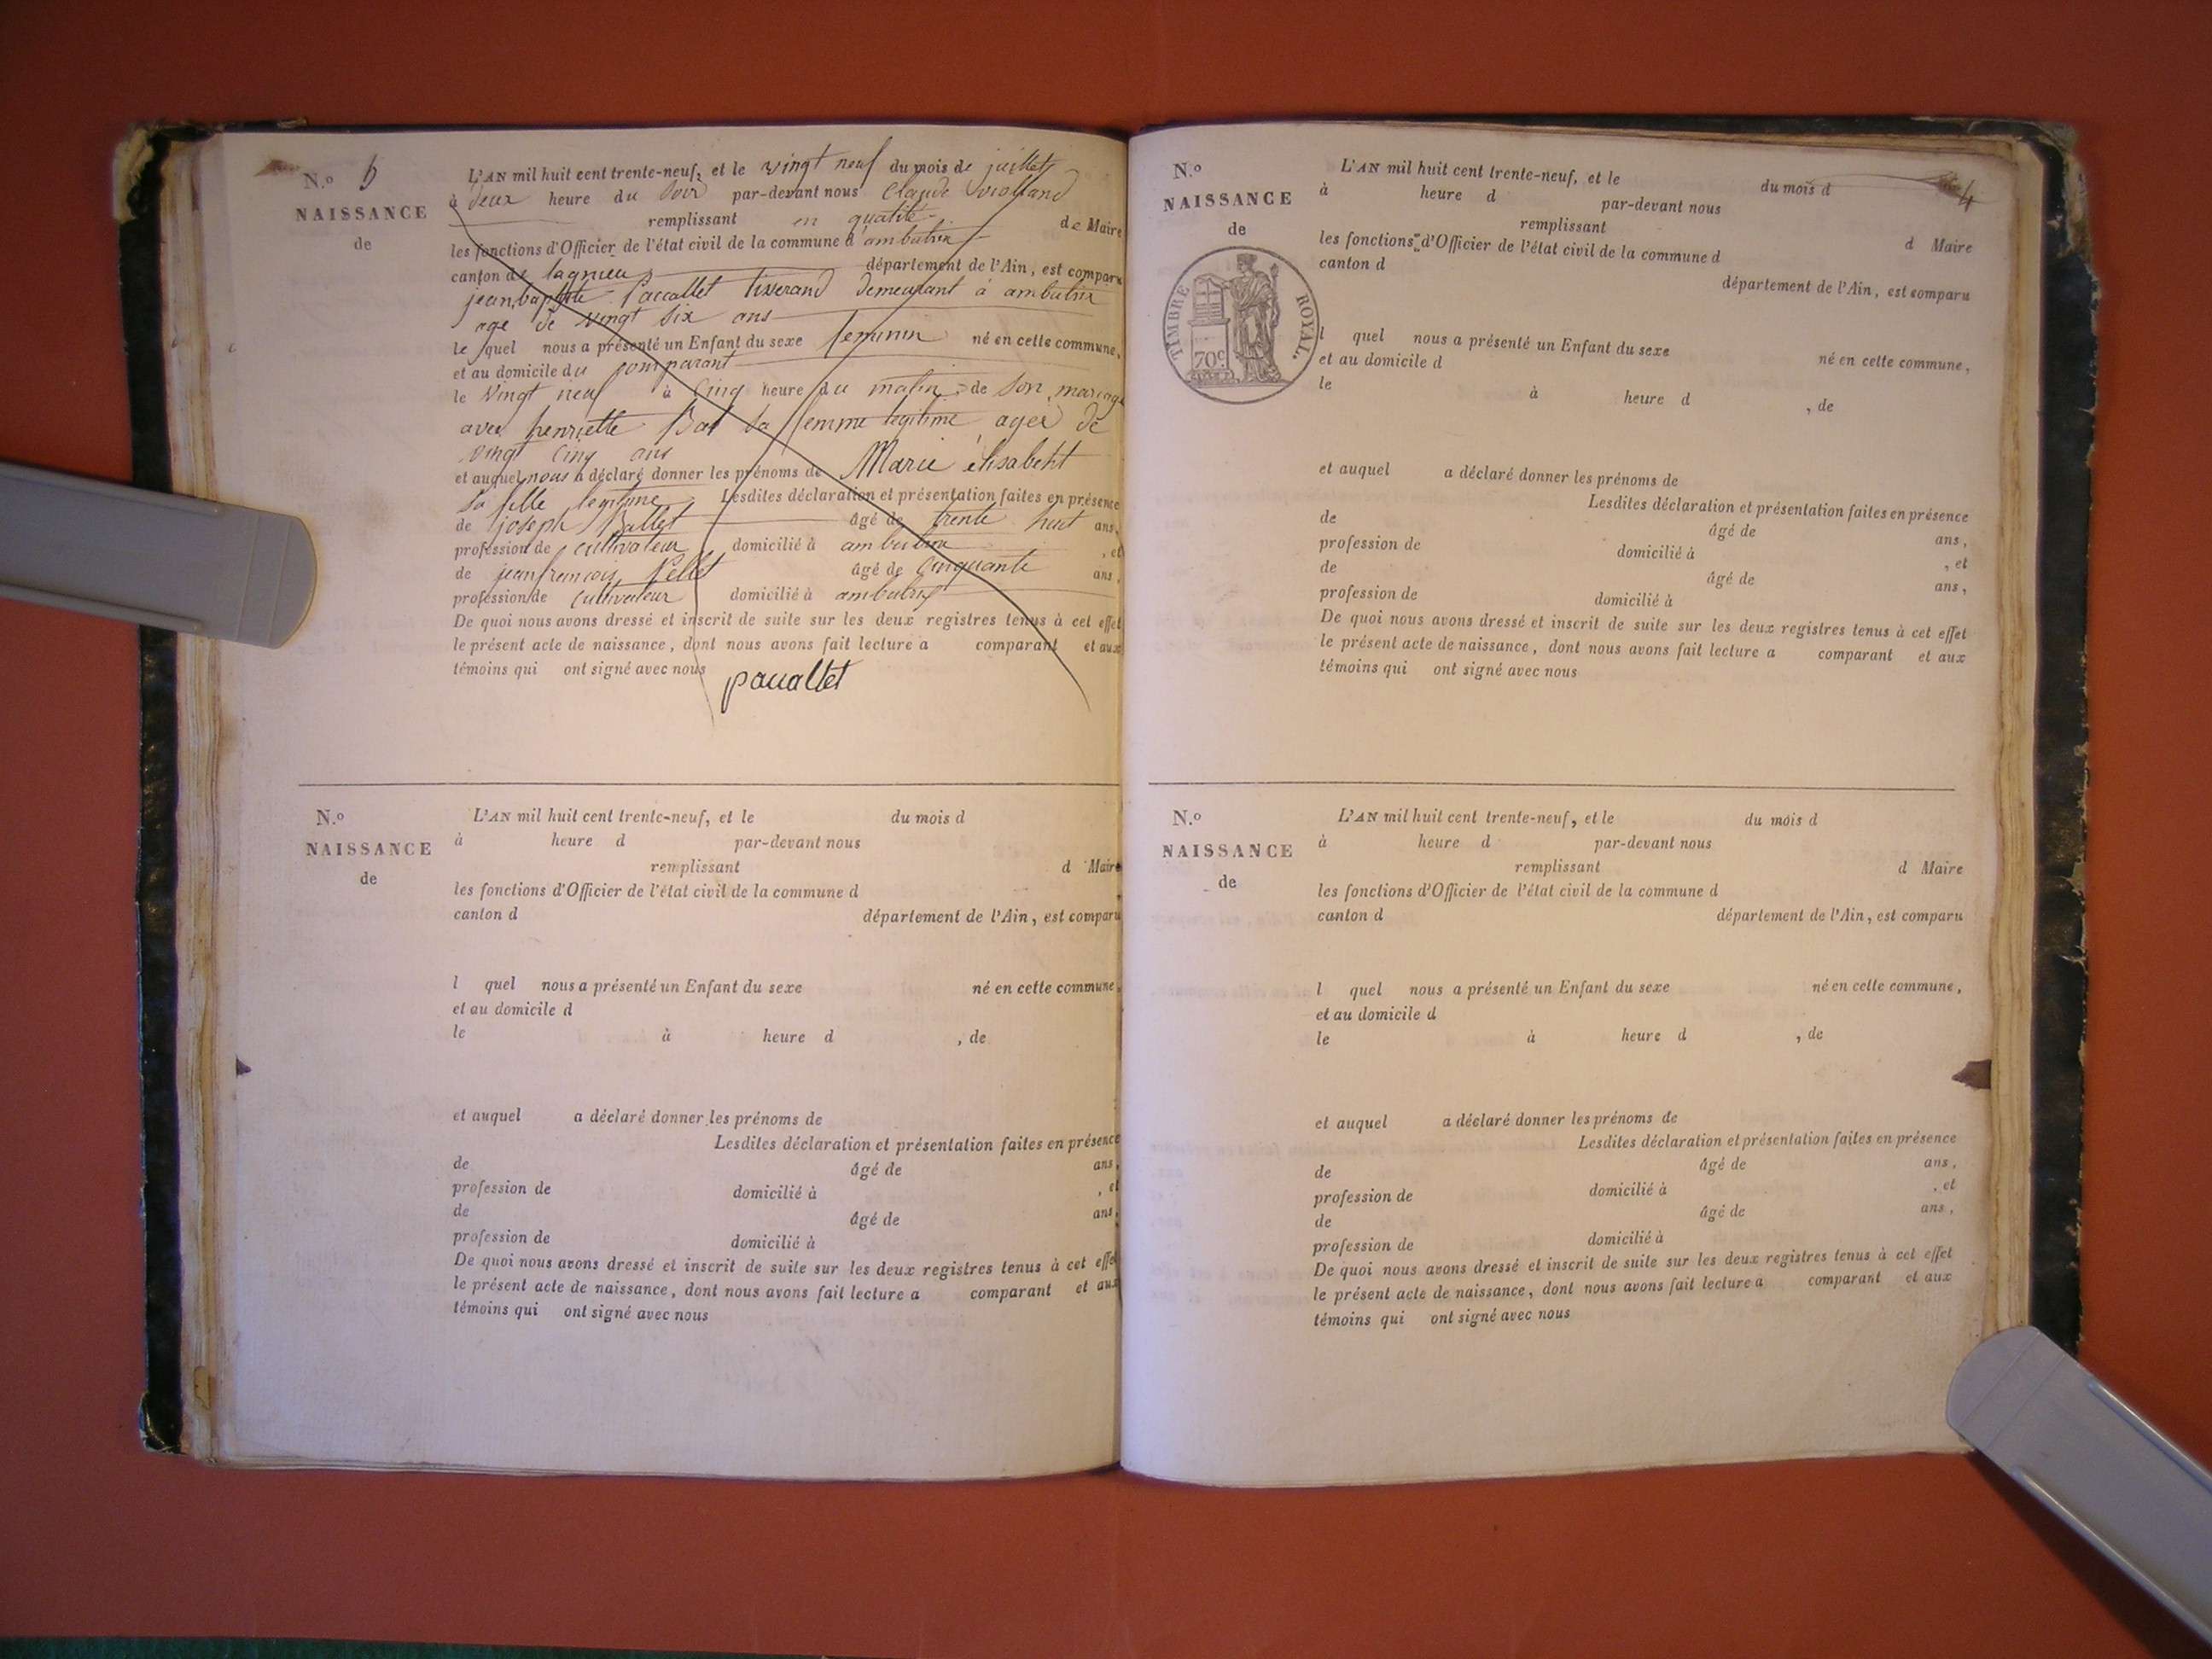 N.o 5
NAISSANCE
de
L'AN mil huit cent trente-neuf, et le vingt neuf du mois de juillet
à deux heure du soir par-devant nous Claude
remplissant en qualité de Maire
les fonctions d'Officier de l'état civil de la commune d'ambutrix
canton de lagnieu département de l'Ain, est comparu
jean baptiste Paccallet tisserand demeurant à ambutrix
age de vingt six ans
le quel nous a présenté un Enfant du sexe feminin né en cette commune,
et au domicile du comparant
le vingt neuf à cinq heure du matin de son mariage
avec henriette Bal sa femme legitime ageé de
vingt cinq ans
et auquel nous a déclaré donner les prénoms de Marie élisabeht
sa fille legitime Lesdites déclaration et présentation faites en présence
de joseph Ballet âgé de trente huit ans,
profession de cultivateur domicilié à ambutrix , et
de jean francois Pellet âgé de cinquante ans,
profession de cultivateur domicilié à ambutrix
De quoi nous avons dressé et inscrit de suite sur les deux registres tenus à cet effet
le présent acte de naissance, dont nous avons fait lecture a comparant et aux
témoins qui ont signé avec nous
paccallet
N.o
NAISSANCE
de
L'AN mil huit cent trente-neuf, et le du mois d
à heure d par-devant nous
remplissant d Maire
les fonctions d'Officier de l'état civil de la commune d
canton d département de l'Ain, est comparu
l quel nous a présenté un Enfant du sexe né en cette commune,
et au domicile d
le à heure d , de
et auquel a déclaré donner les prénoms de
Lesdites déclaration et présentation faites en présence
de âgé de ans,
profession de domicilié à , et
de âgé de ans,
profession de domicilié à
De quoi nous avons dressé et inscrit de suite sur les deux registres tenus à cet effet
le présent acte de naissance, dont nous avons fait lecture a comparant et aux
témoins qui ont signé avec nous
4
N.o
NAISSANCE
de
TIMBRE ROYAL.
70c
L'AN mil huit cent trente-neuf, et le du mois d
à heure d par-devant nous
remplissant d Maire
les fonctions d'Officier de l'état civil de la commune d
canton d département de l'Ain, est comparu
l quel nous a présenté un Enfant du sexe né en cette commune,
et au domicile d
le à heure d , de
et auquel a déclaré donner les prénoms de
Lesdites déclaration et présentation faites en présence
de âgé de ans,
profession de domicilié à , et
de âgé de ans,
profession de domicilié à
De quoi nous avons dressé et inscrit de suite sur les deux registres tenus à cet effet
le présent acte de naissance, dont nous avons fait lecture a comparant et aux
témoins qui ont signé avec nous
N.o
NAISSANCE
de
L'AN mil huit cent trente-neuf, et le du mois d
à heure d par-devant nous
remplissant d Maire
les fonctions d'Officier de l'état civil de la commune d
canton d département de l'Ain, est comparu
l quel nous a présenté un Enfant du sexe né en cette commune,
et au domicile d
le à heure d , de
et auquel a déclaré donner les prénoms de
Lesdites déclaration et présentation faites en présence
de âgé de ans,
profession de domicilié à , et
de âgé de ans,
profession de domicilié à
De quoi nous avons dressé et inscrit de suite sur les deux registres tenus à cet effet
le présent acte de naissance, dont nous avons fait lecture a comparant et aux
témoins qui ont signé avec nous